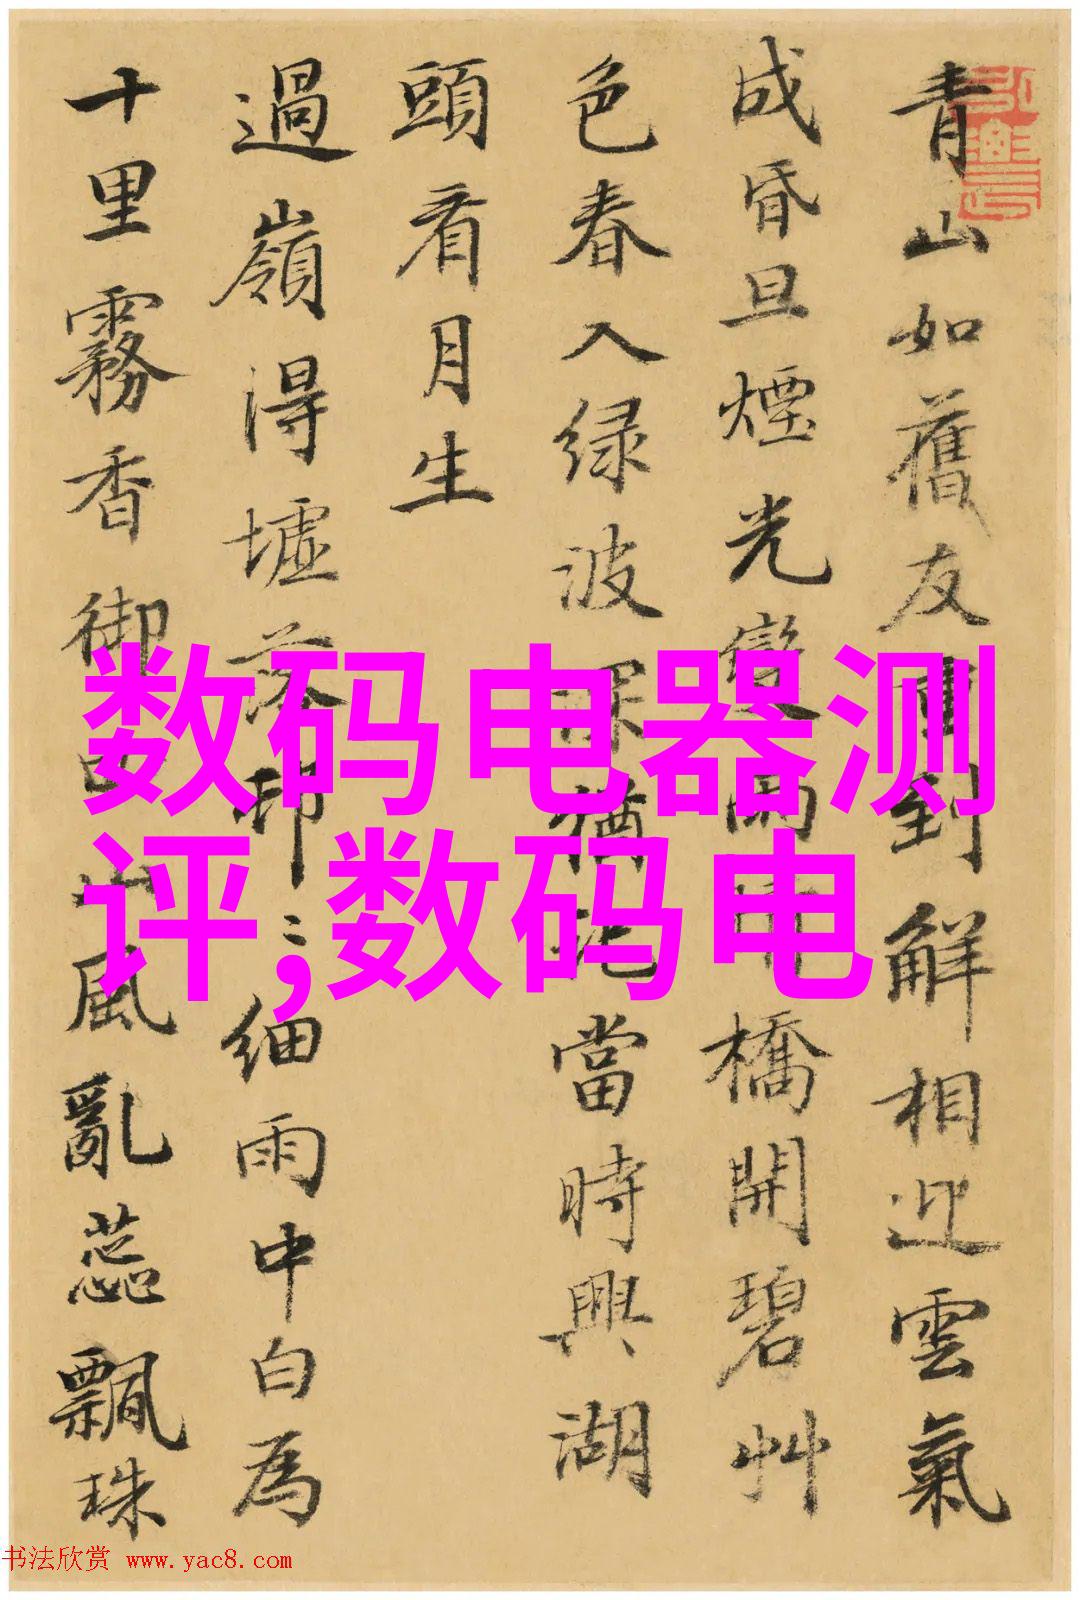 青山如舊友重到解相迎雲氣
成昏旦煙光變雨晴橋開碧艸
色春入緑波深猶記當時興湖
頭看月生
過嶺得墟落
細雨中白為
十里霧香御
風亂蕊飄珠
数码电器测
评;数码电
书法欣赏 www.yac8.com